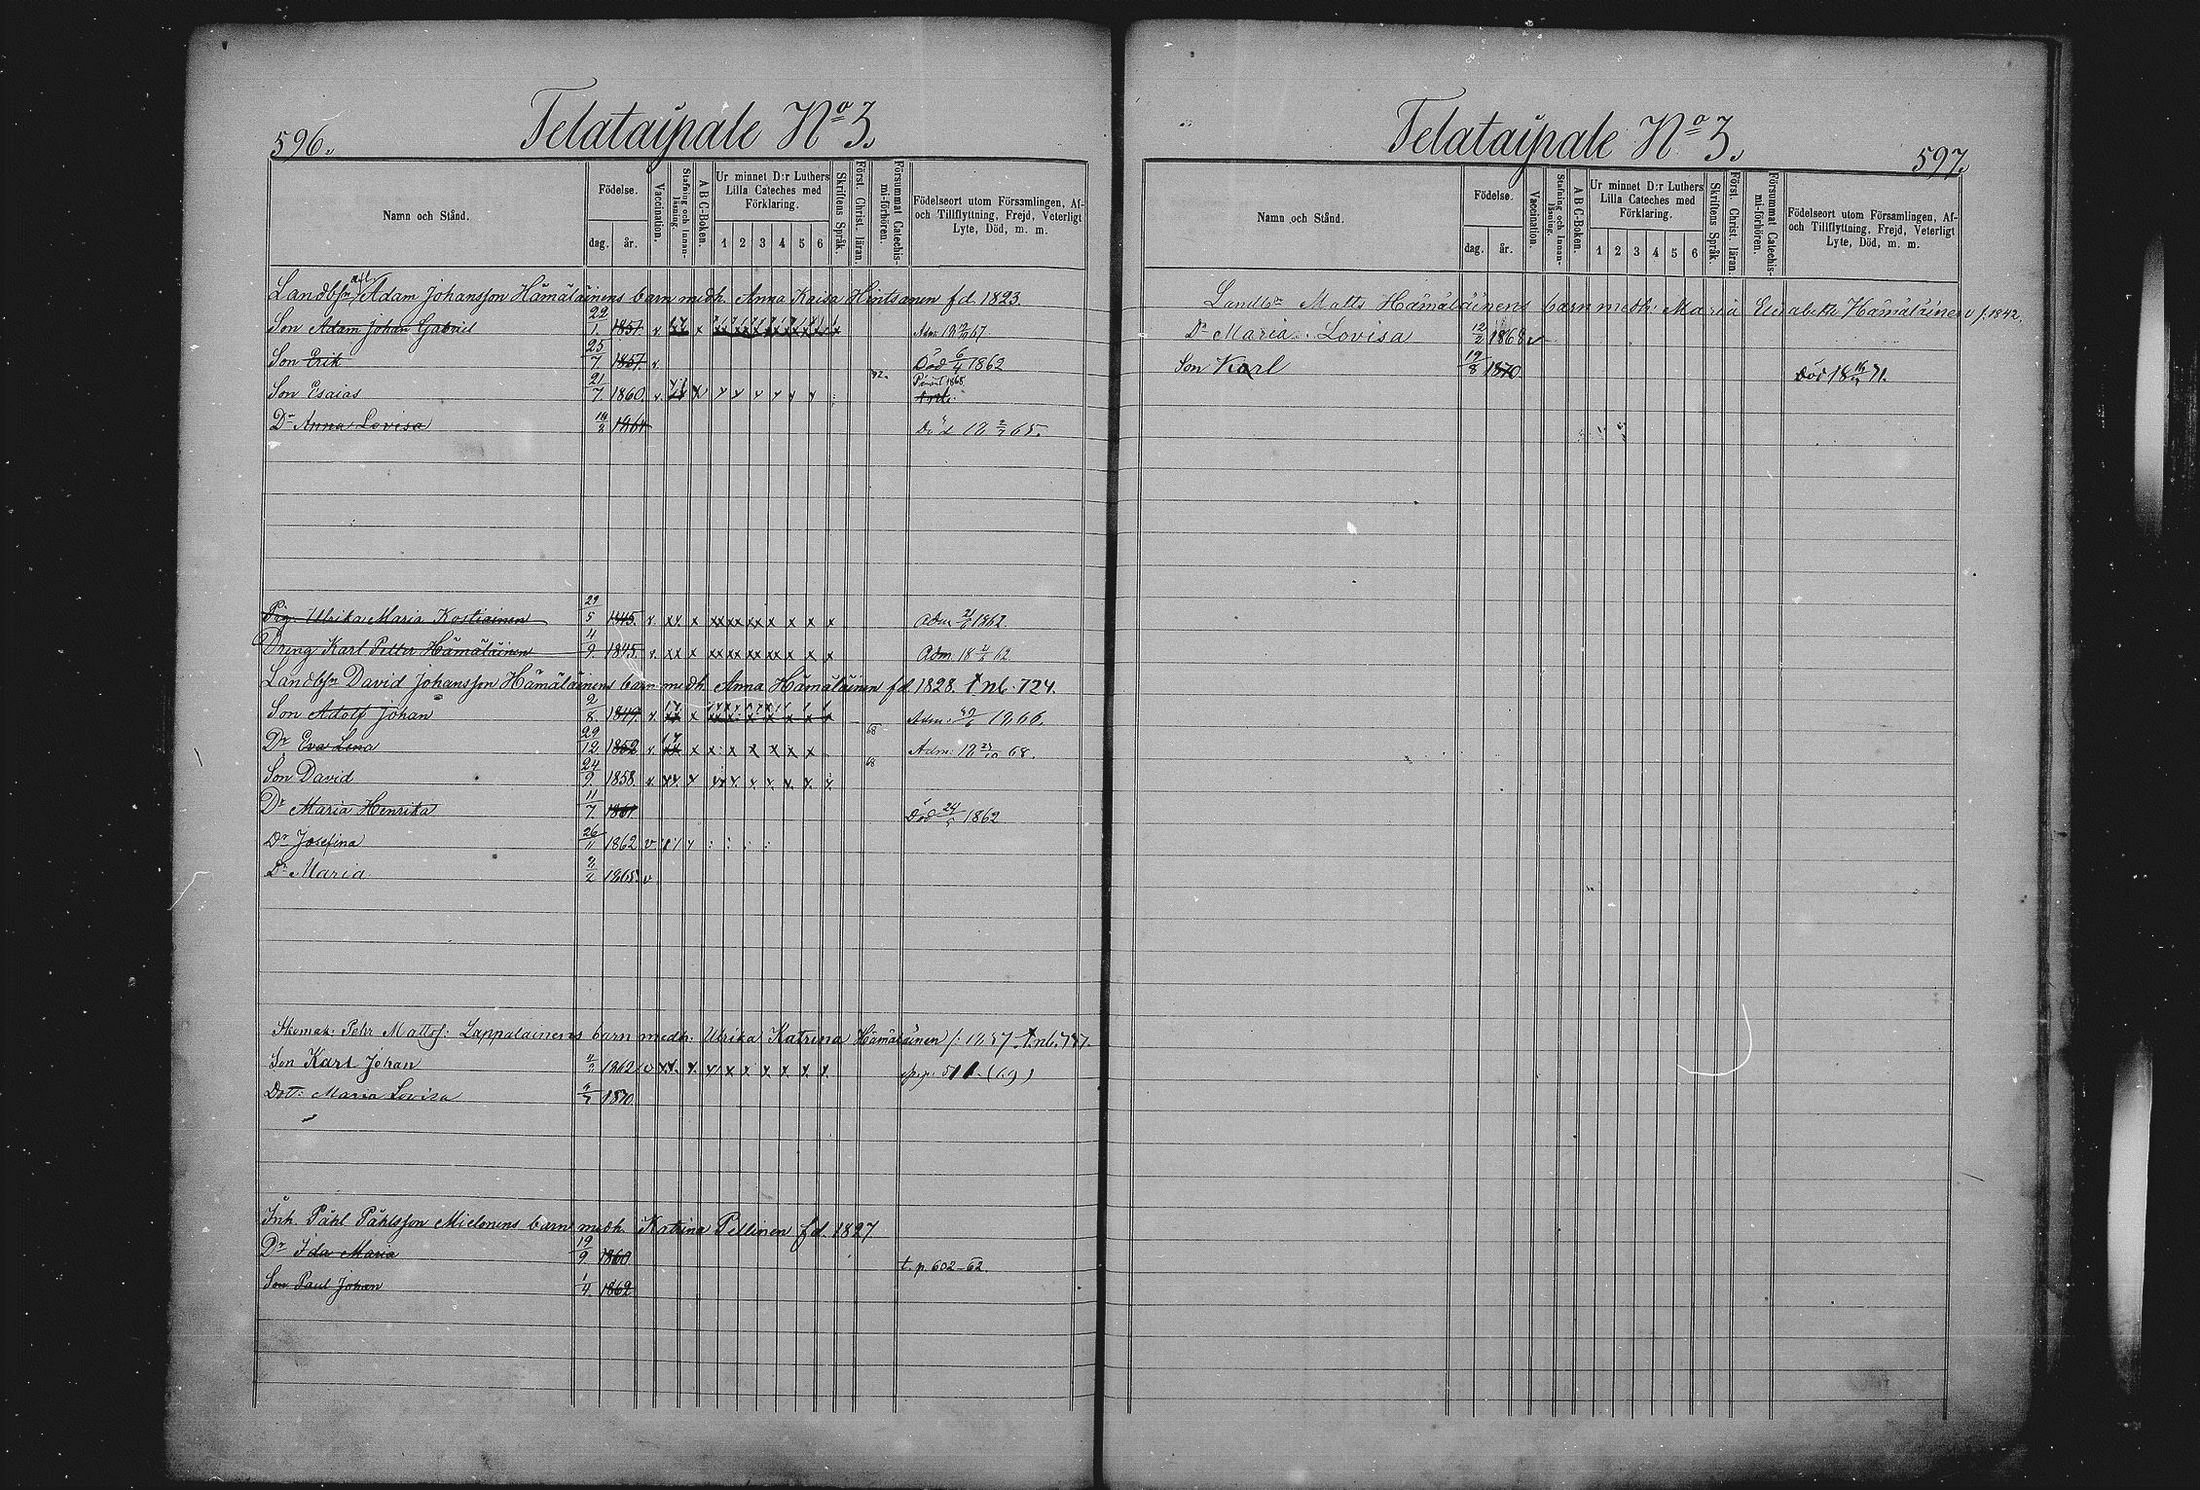 596.
Telataipale No 3.
Namn och Stånd.
Födelse.
dag.
år.
Vaccination.
Stafning och Innanläsning.
A B C-Boken.
Ur minnet D:r Luthers Lilla Cateches med Förklaring.
1 2 3 4 5 6
Skriftens Språk.
Först. Christ. läran.
Försummat Catechismi-förhören.
Födelseort utom Församlingen, Af- och Tillflyttning, Frejd, Veterligt Lyte, Död, m. m.
Landbfr Adam Johansson Hämäläinens barn medh. Anna Kaisa Hintsanen fd. 1823.
Son Adam Johan Gabriel 22/1. 1851 v x
Son Erik 25/7 1857. v. Död 6/4 1862
Son Esaias 21/7. 1860. v. x x x x x x x
Dr Anna Lovisa 1861 Död
Pig. Ulrika Maria Kostiainen 29/5 1845. v. xx x xx xx xx x x x x Adm 1862.
Dreng Karl Petter Hämäläinen 4/9. 1845. v. xx x xx xx xx xx x x x Adm. 62.
Landbfr David Johansson Hämäläinens barn medh. Anna Hämäläinen fd. 1828. nb. 724.
Son Adolf Johan 2/8. 1849 v. x Adm. 1866.
Dr Eva Lena 29/12 1852 v. x x x x x x x 68 Adm: 68.
Son David 24/9. 1858. v. xx. x xx x. x x x. x x 68
Dr Maria Henrika 11/7. 1861 Död 24/5 1862
Dr Josefina 26/11 1862 v
Dr Maria 1865. v
Skomak. Pehr Matts: Lappalainens barn medh. Ulrika Katrina Hämäläinen
Son Karl Johan 1862 v xx. x. x x x x. x. x. x.
Dott: Maria Lovisa 1870.
Inh. Påhl Påhlsson Mielonens barn medh. Katrina Pellinen fd. 1827.
Dr Ida Maria 19/9. 1860. t. p. 602-62
Son Paul Johan 1/4. 1862
597.
Telataipale No 3.
Namn och Stånd.
Födelse.
dag.
år.
Vaccination.
Stafning och Innanläsning.
A B C-Boken.
Ur minnet D:r Luthers Lilla Cateches med Förklaring.
1 2 3 4 5 6
Skriftens Språk.
Först. Christ. läran.
Försummat Catechismi-förhören.
Födelseort utom Församlingen, Af- och Tillflyttning, Frejd, Veterligt Lyte, Död, m. m.
Landbr Matts Hämäläinens barn medh: Maria Elisabeth Hämäläinen f. 1842.
Dr Maria Lovisa 12/2 1868 v
Son Karl 19/8 1870 Död 71.